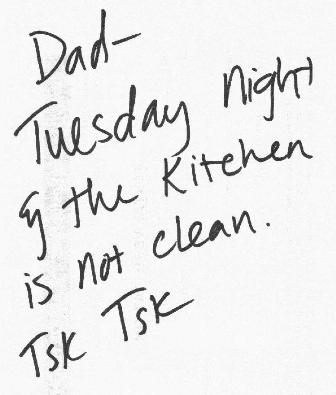 Dad-
Tuesday night
& the kitchen
is not clean.
Tsk Tsk